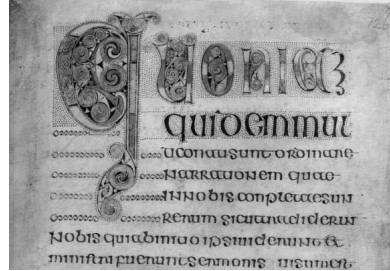 Quoniam
quidemmul
ticonatisuntordinare
narrationem quae
innobis completaesun
rerum sicuttradiderun
nobis quiabinitio ipsiuiderunt et
ministri fuerunt sermonis uisumest